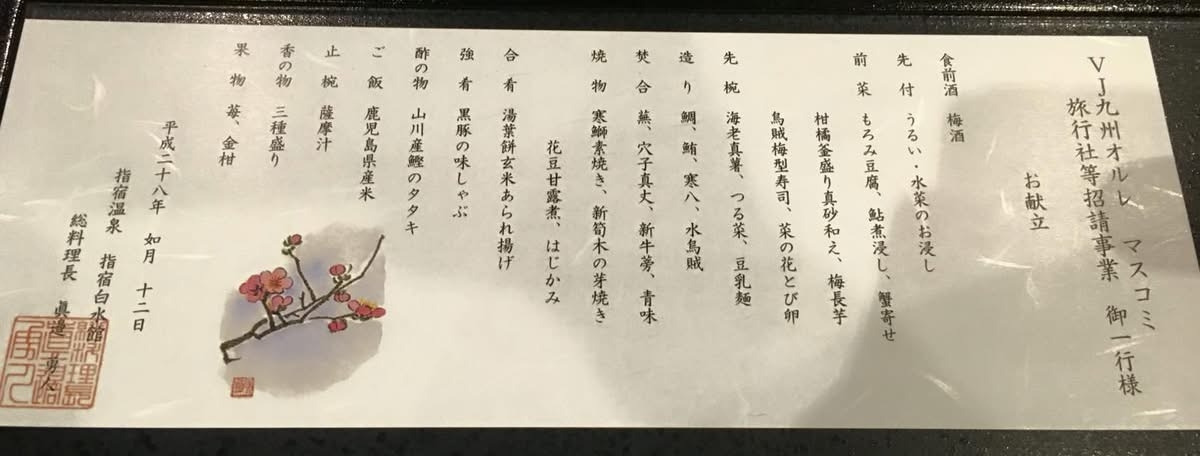 VJ九州オルレ　マスコミ
旅行社等招請事業　御一行様
お献立
食前酒　梅酒
先付　うるい・水菜のお浸し
前菜　もろみ豆腐、鮎煮浸し、蟹寄せ
柑橘釜盛り真砂和え、梅長芋
烏賊梅型寿司、菜の花とび卵
先椀　海老真薯、つる菜、豆乳麺
造り　鯛、鮪、寒八、水烏賊
焚合　蕪、穴子真丈、新牛蒡、青味
焼物　寒鰤素焼き、新筍木の芽焼き
花豆甘露煮、はじかみ
合肴　湯葉餅玄米あられ揚げ
強肴　黒豚の味しゃぶ
酢の物　山川産鰹のタタキ
ご飯　鹿児島県産米
止椀　薩摩汁
香の物　三種盛り
果物　苺、金柑
平成二十八年　如月　十二日
指宿温泉　指宿白水館
総料理長　眞邉　勇人